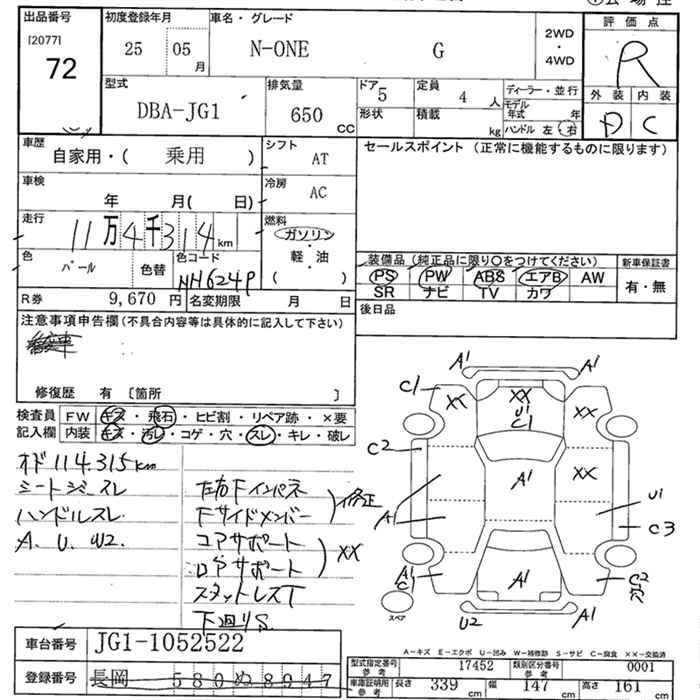 出品番号 初度登録年月 車名・グレード 評価点
[2077] 25 05 月 N-ONE G 2WD・4WD R
72
型式 排気量 ドア 定員 ディーラー・並行 外装 内装
DBA-JG1 650 CC 5 4 人 モデル年式 年 D C
形状 積載 kg ハンドル 左・右
車歴 自家用・( 乗用 ) シフト AT セールスポイント (正常に機能するものに限ります)
車検 年 月( 日) 冷房 AC
走行 11万4千314 km 燃料 ガソリン・軽・油 ( )
色 パール 色替 色コード NH624P
装備品(純正品に限り○をつけてください) 新車保証書
PS PW ABS エアB AW 有・無
SR ナビ TV カワ
R券 9,670 円 名変期限 月 日 後日品
注意事項申告欄(不具合内容等は具体的に記入して下さい)
修復歴 有 〔箇所 〕
検査員 FW キズ・飛石・ヒビ割・リペア跡・×要
記入欄 内装 キズ・汚レ・コゲ・穴・スレ・キレ・破レ
オド114.315km
シートジミスレ
ハンドルスレ
A. U. U2.
左右Fインパネ
Fサイドメンバー 修正
コアサポート
ロアサポート XX
スタットレスT
下廻りS
A1 A1
C1 XX XX XX
U1
C1
C2 A1 XX
A1 U1
C3
A1
C1 A1 C2
R
スペア U2 A1
A-キズ E-エクボ U-凹み W-補修跡 S-サビ C-腐食 ××-交換済
車台番号 JG1-1052522
登録番号 長岡 580ぬ8947
型式指定番号 参考 17452 類別区分番号 参考 0001
車庫証明用 参考 長さ 339 cm 幅 147 cm 高さ 161 cm